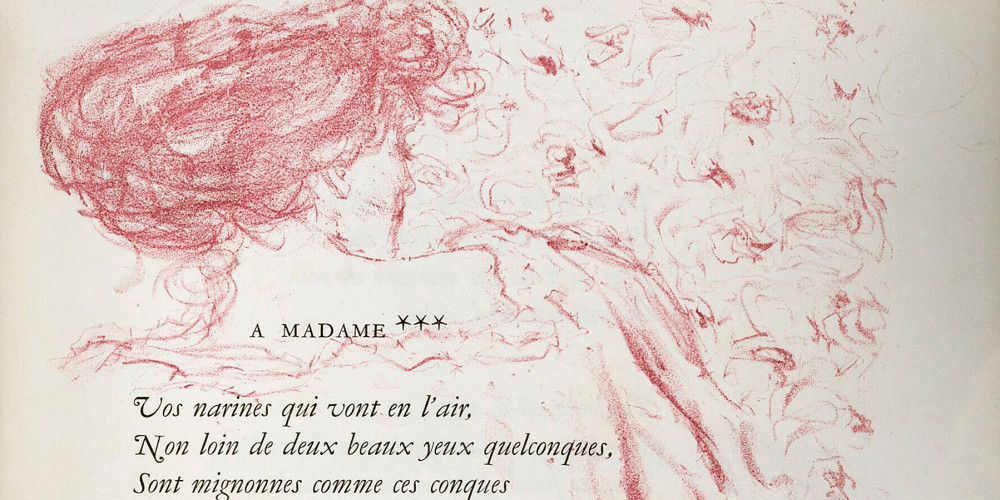 A MADAME ***
Vos narines qui vont en l'air,
Non loin de deux beaux yeux quelconques,
Sont mignonnes comme ces conques